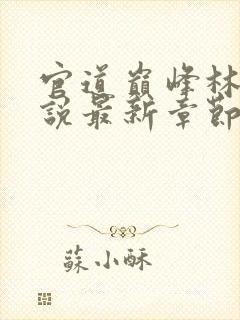 官道巔峰林
說最新章節
蘇小酥